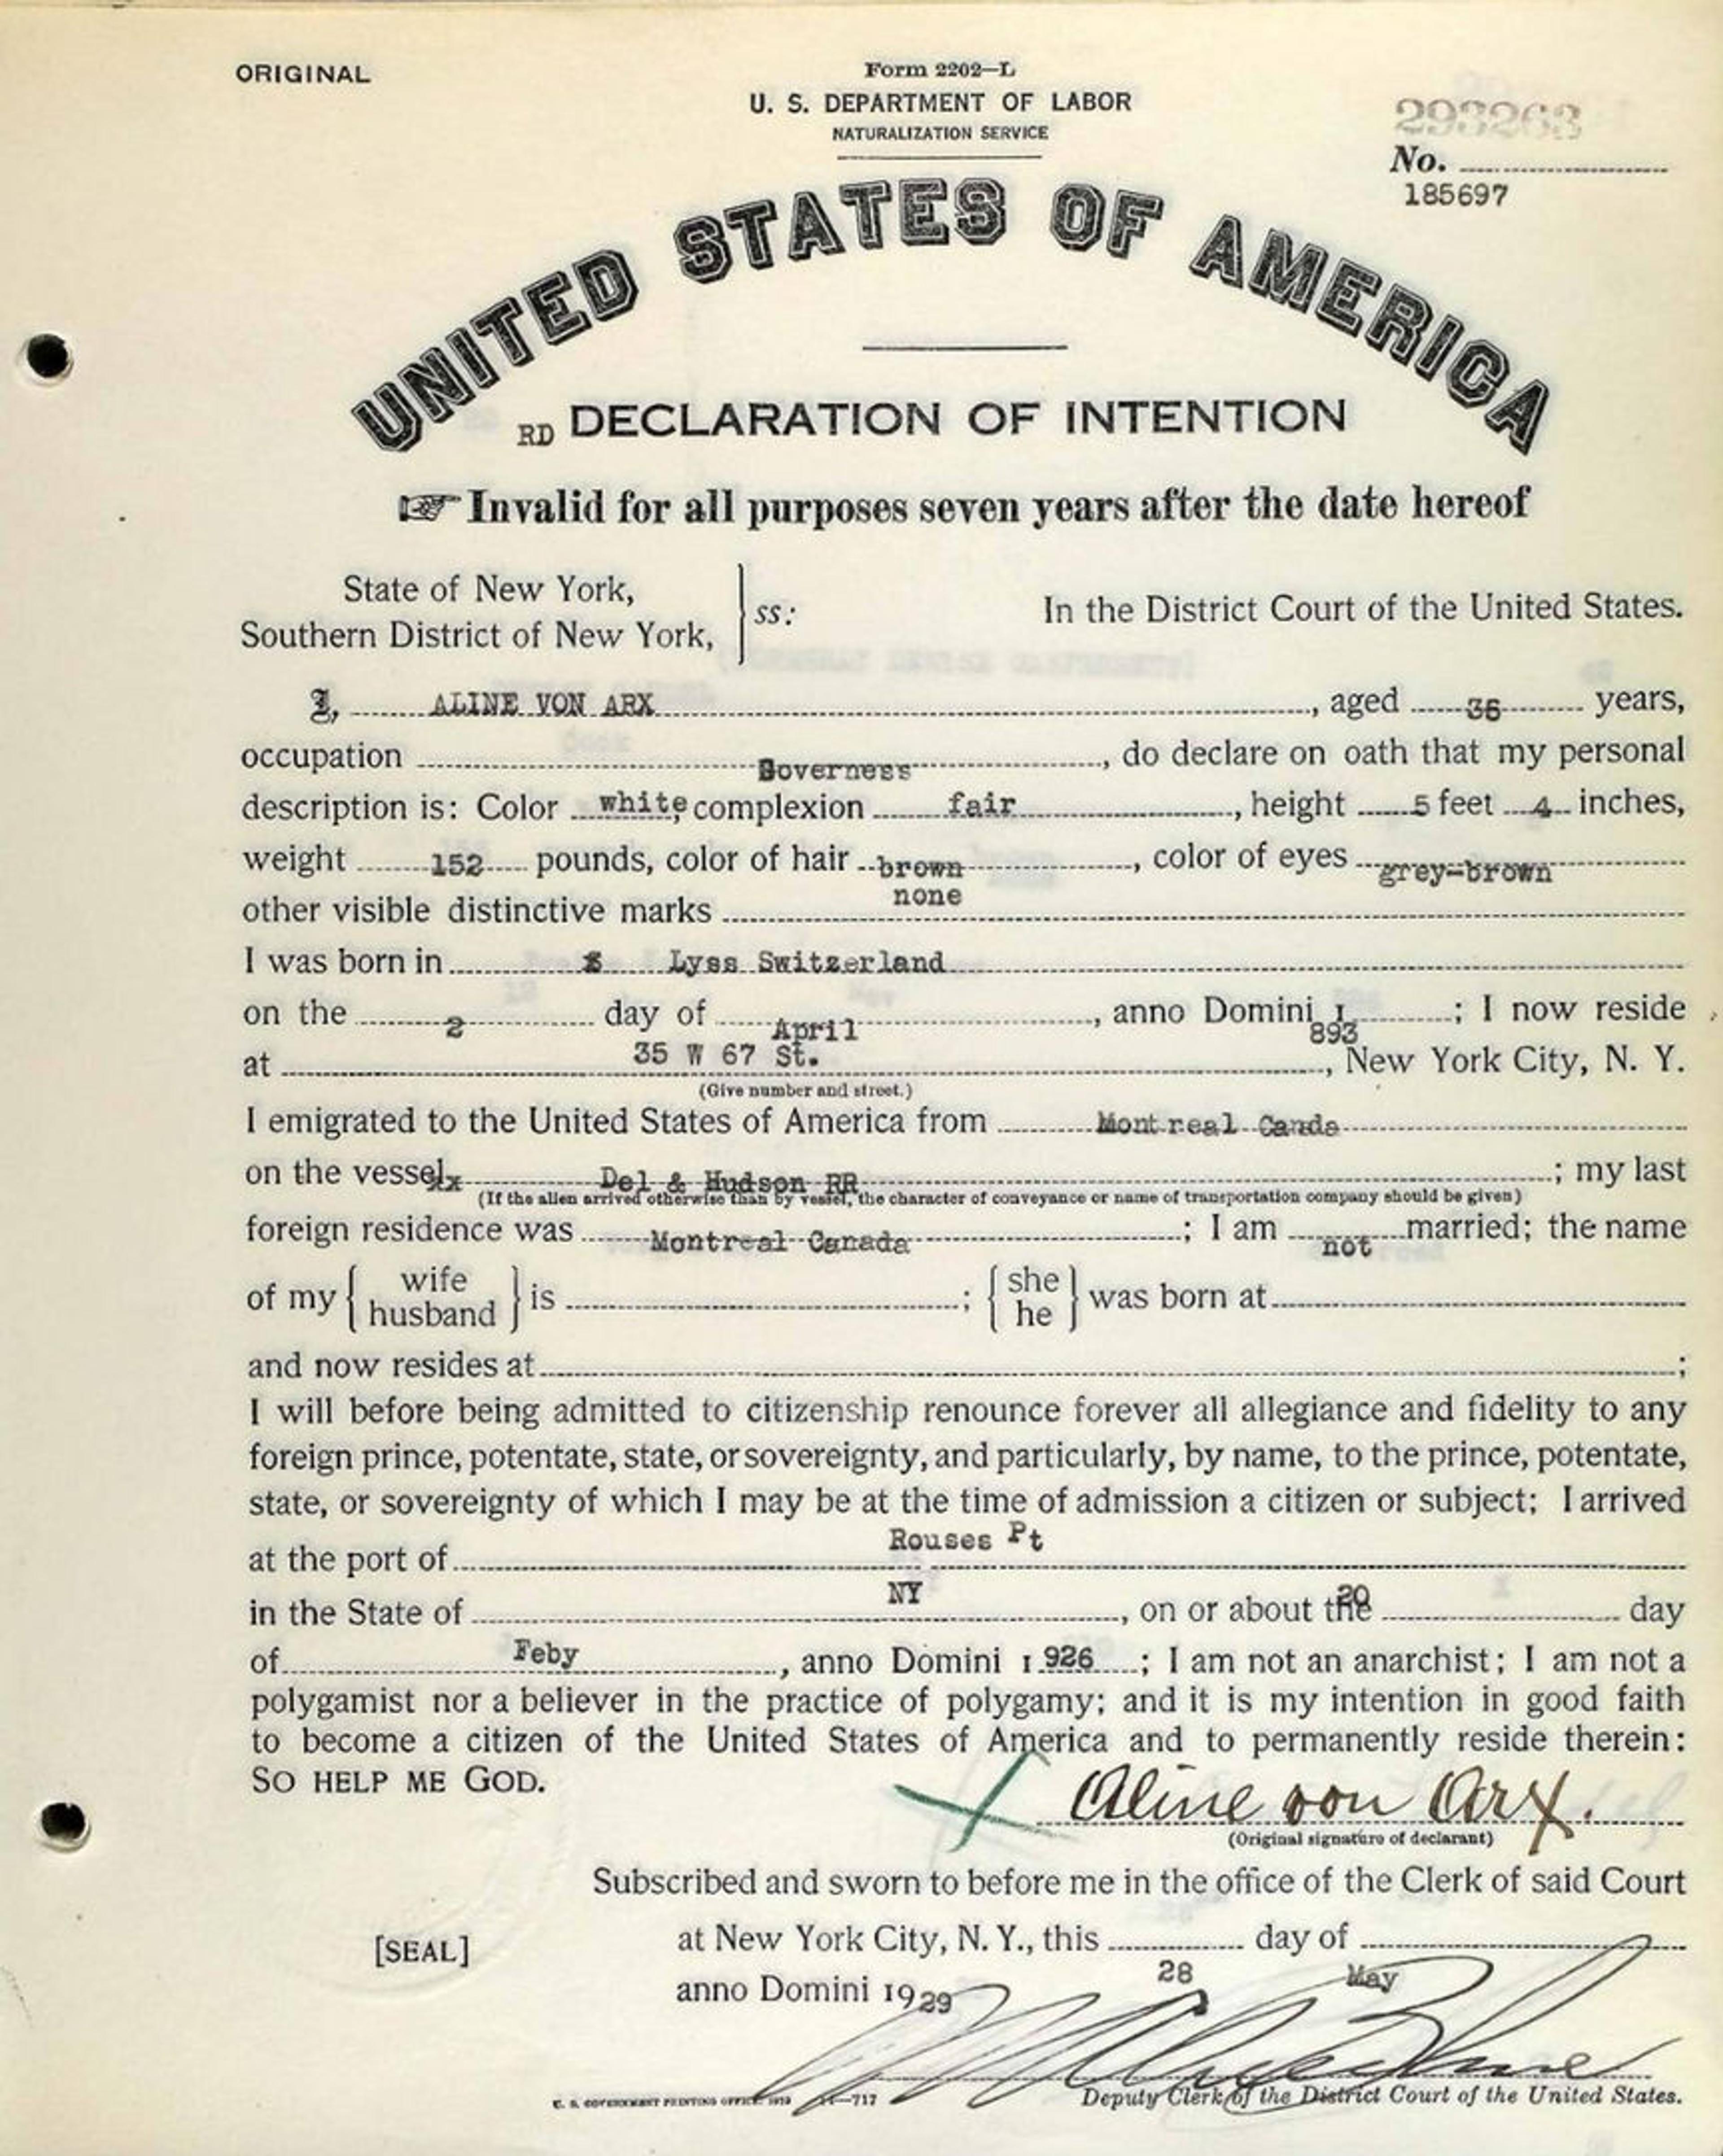 ORIGINAL
Form 2202—L
U. S. DEPARTMENT OF LABOR
NATURALIZATION SERVICE
293263
No.
185697
UNITED STATES OF AMERICA
RD DECLARATION OF INTENTION
☞ Invalid for all purposes seven years after the date hereof
State of New York,
Southern District of New York,
ss:
In the District Court of the United States.
I, ALINE VON ARX, aged 36 years,
occupation Governess, do declare on oath that my personal
description is: Color white, complexion fair, height 5 feet 4 inches,
weight 152 pounds, color of hair brown, color of eyes grey-brown
other visible distinctive marks none
I was born in Lyss Switzerland
on the 2 day of April, anno Domini 1 893; I now reside
at 35 W 67 St., New York City, N. Y.
(Give number and street.)
I emigrated to the United States of America from Montreal Canda
on the vessel x Del & Hudson RR; my last
(If the alien arrived otherwise than by vessel, the character of conveyance or name of transportation company should be given)
foreign residence was Montreal Canada; I am not married; the name
of my { wife husband } is ; { she he } was born at
and now resides at ;
I will before being admitted to citizenship renounce forever all allegiance and fidelity to any
foreign prince, potentate, state, or sovereignty, and particularly, by name, to the prince, potentate,
state, or sovereignty of which I may be at the time of admission a citizen or subject; I arrived
at the port of Rouses Pt
in the State of NY, on or about the 20 day
of Feby, anno Domini 1 926; I am not an anarchist; I am not a
polygamist nor a believer in the practice of polygamy; and it is my intention in good faith
to become a citizen of the United States of America and to permanently reside therein:
SO HELP ME GOD.
X Aline von Arx.
(Original signature of declarant)
Subscribed and sworn to before me in the office of the Clerk of said Court
[SEAL]
at New York City, N. Y., this 28 day of May
anno Domini 19 29
Deputy Clerk of the District Court of the United States.
U. S. GOVERNMENT PRINTING OFFICE —717